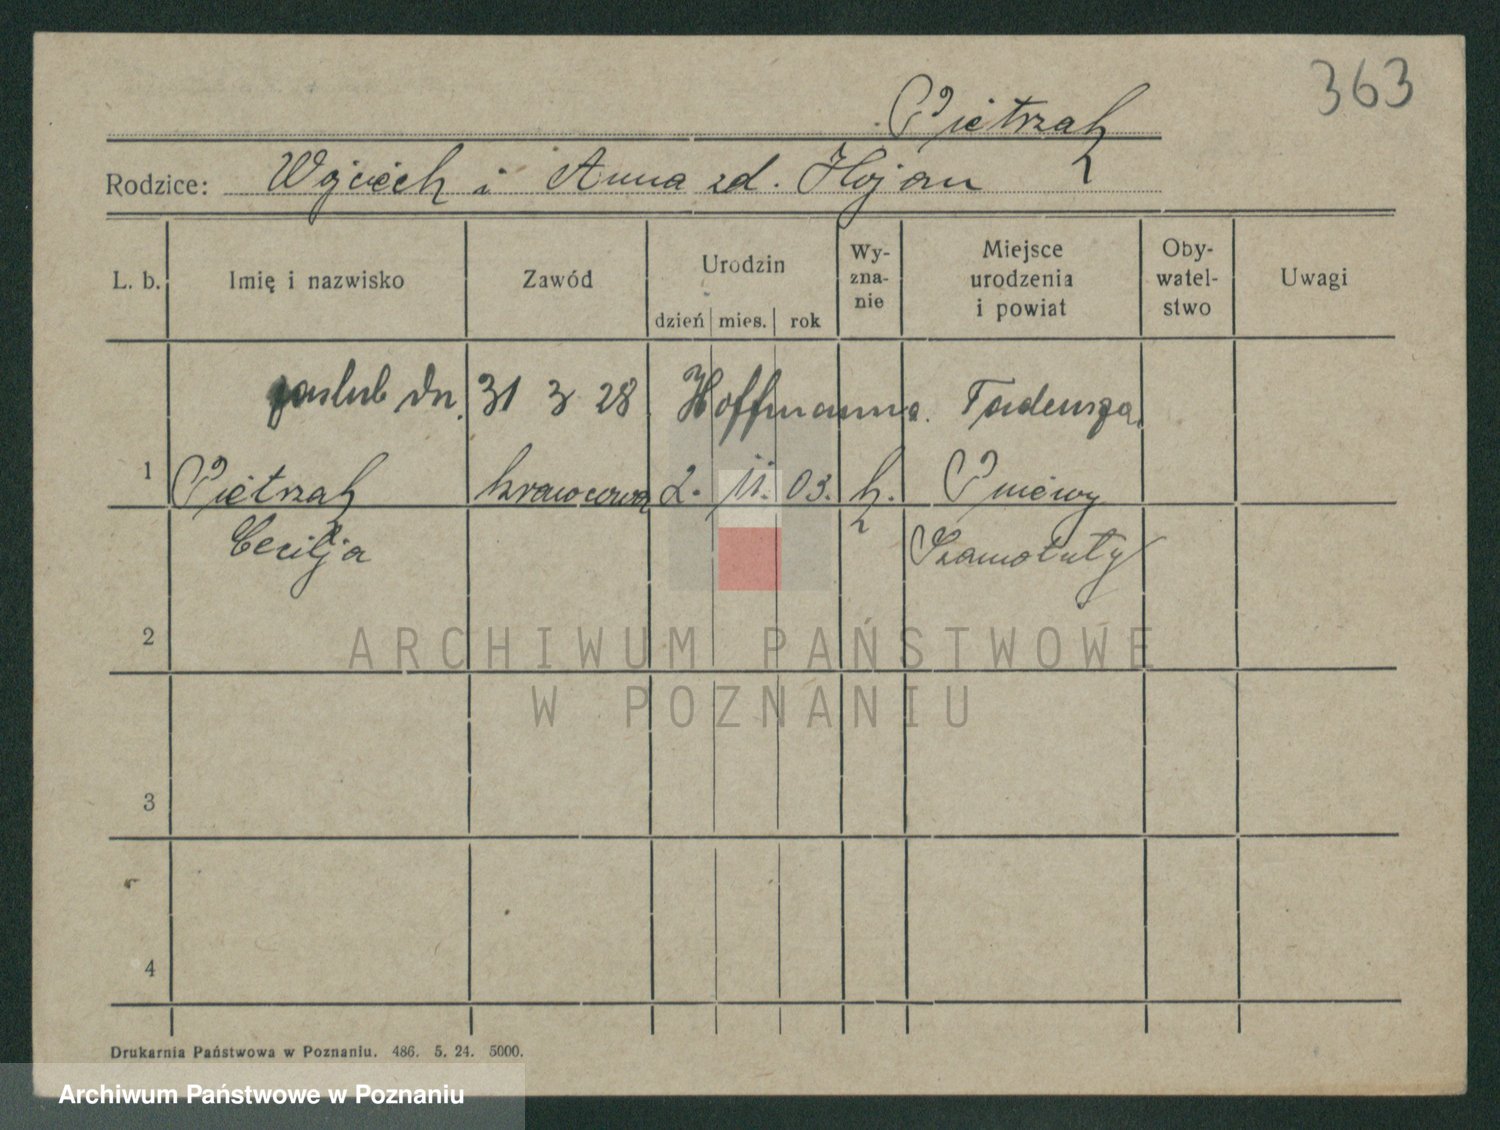 363
Pietrzak
Rodzice: Wojciech i Anna zd. Hojan
L. b. Imię i nazwisko Zawód Urodzin dzień mies. rok Wy-zna-nie Miejsce urodzenia i powiat Oby-watel-stwo Uwagi
poślub dn. 31 3 28 Hoffmanna Tadeusza
1 Pietrzak krawcowa 2. 11. 03. k. Pniewy
Cecilja Szamotuły
2
ARCHIWUM PAŃSTWOWE
W POZNANIU
3
4
Drukarnia Państwowa w Poznaniu. 486. 5. 24. 5000.
Archiwum Państwowe w Poznaniu